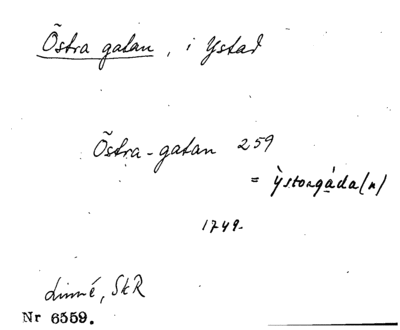 Östra gatan, i Ystad
Östra-gatan 259
= ỳstorgáda(n)
1749.
Linné, SkR
Nr 6559.